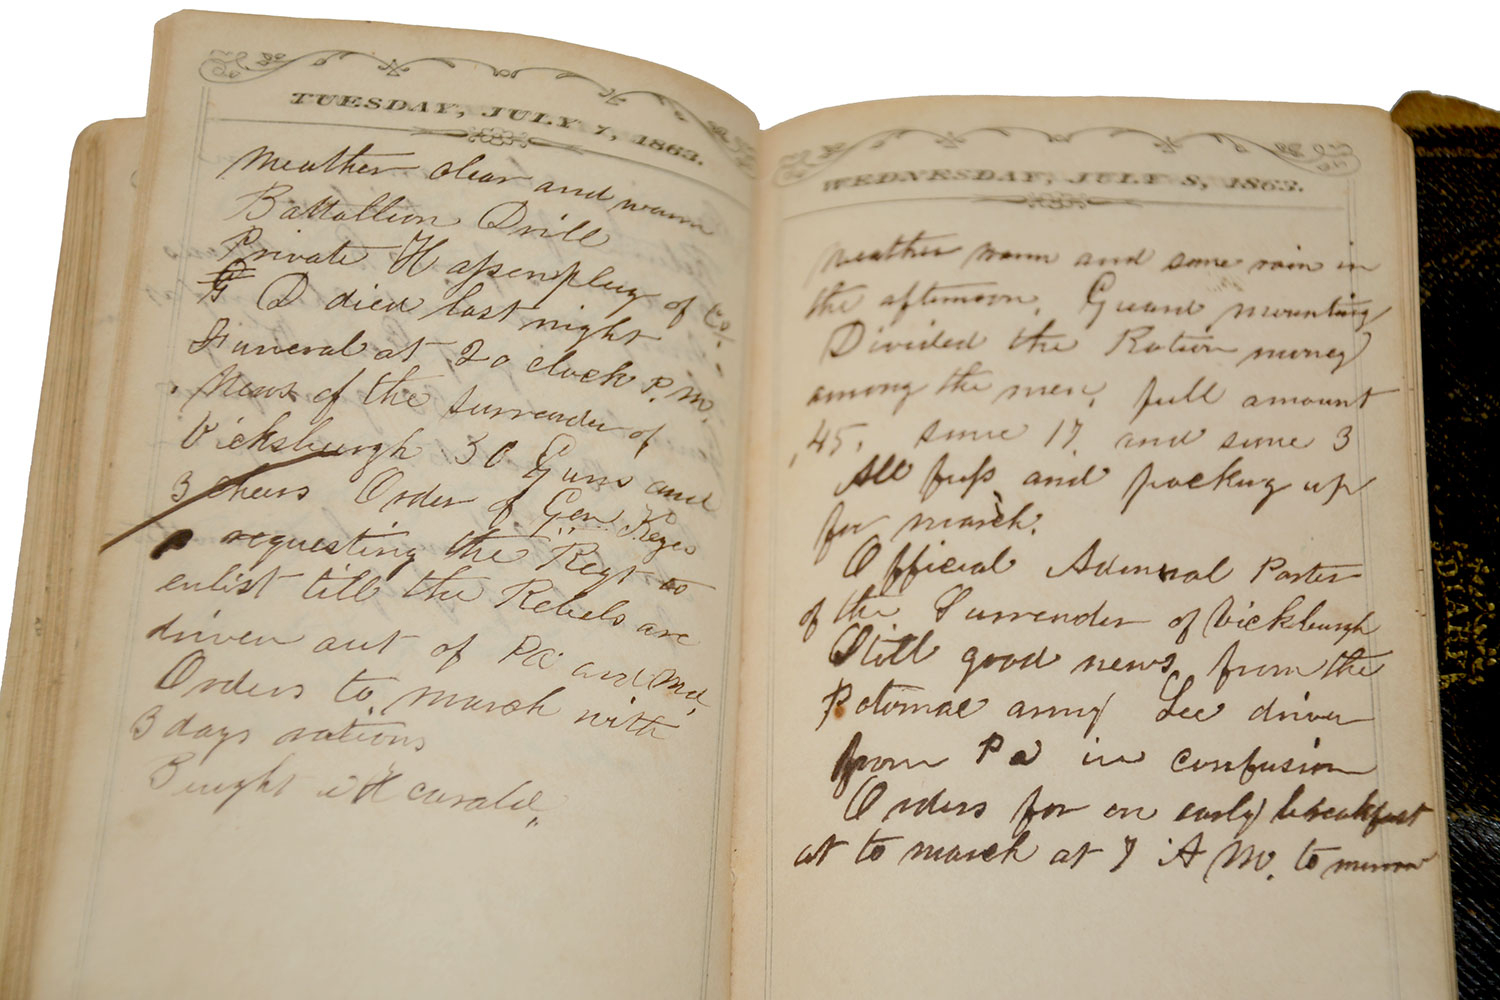 TUESDAY, JULY 7, 1863.
Weather clear and warm
Battallion Drill
Private Hassenplug of Co.
G D died last night
Funeral at 2 o clock P.M.
News of the surrender of
Vicksburgh 30 Guns and
3 cheers Order of Gen. Keyes
requesting the Regt to
enlist till the Rebels are
driven out of Pa and Md.
Orders to march with
3 days rations
WEDNESDAY, JULY 8, 1863.
Weather warm and some rain in
the afternoon. Guard mounting
Divided the Ration money
among the men, full amount
,45, some 17, and some 3
All fuss and packing up
for march.
Official Admiral Porter
of the Surrender of Vicksburgh
Still good news from the
Potomac army Lee driven
from Pa in confusion
Orders for an early breakfast
at to march at 7 A M. to morrow
DIARY